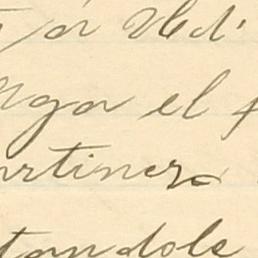 a Ud.
nga el
artinez
tandole